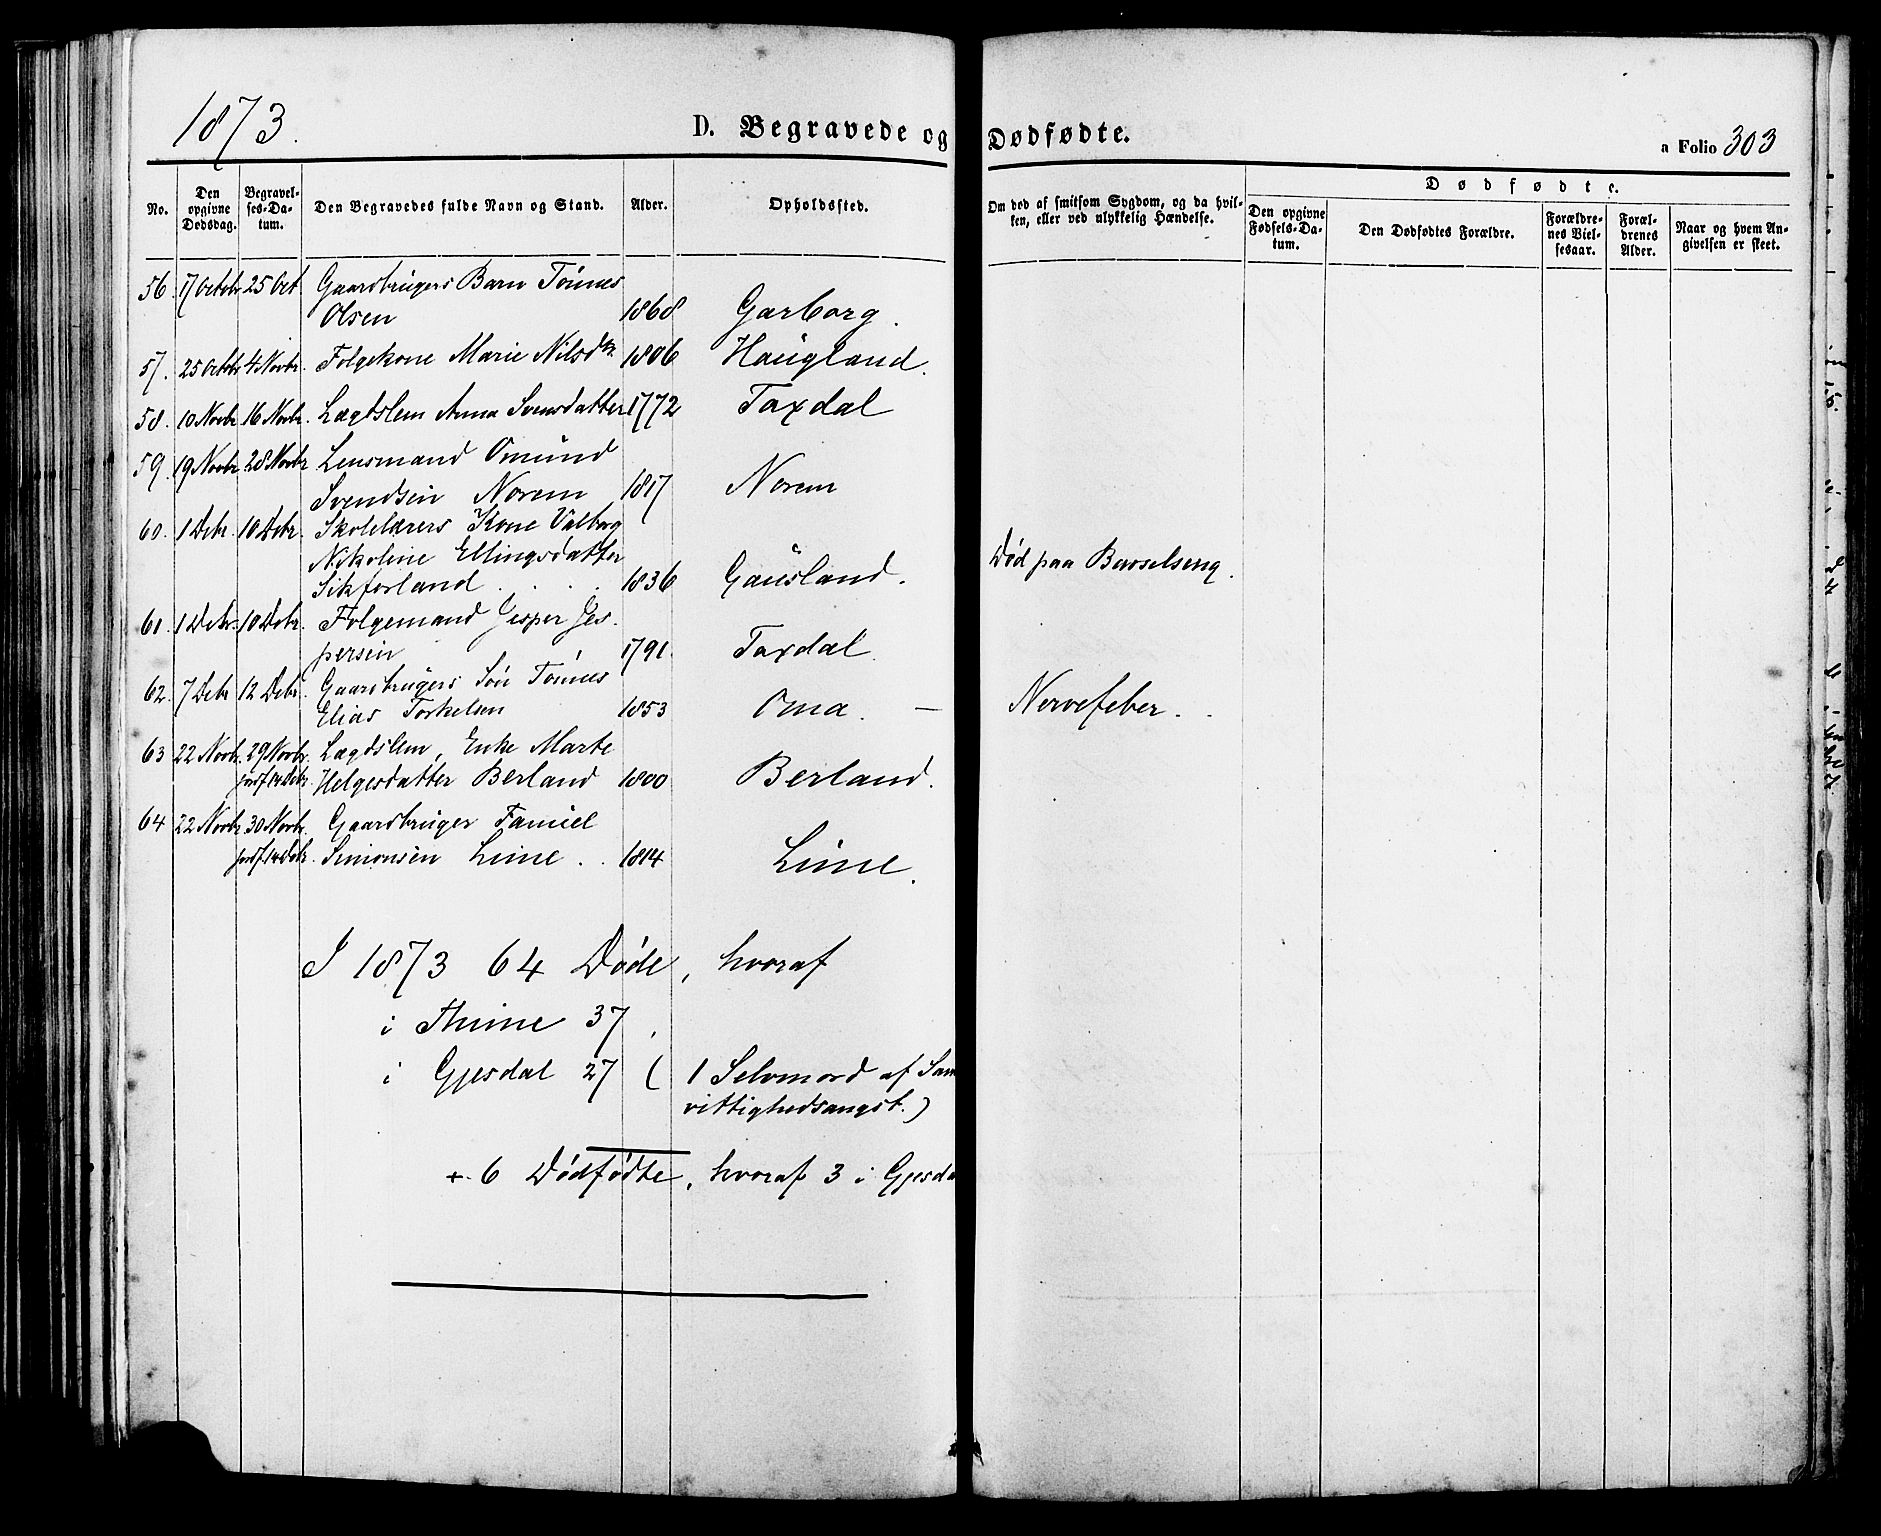 1873.
D. Begravede og Dødfødte.
a Folio 303
No.
Den opgivne Dødsdag.
Begravelses-Datum.
Den Begravedes fulde Navn og Stand.
Alder.
Opholdssted.
Om død af smitsom Sygdom, og da hvilken, eller ved ulykkelig Hændelse.
Dødfødte.
Den opgivne Fødsels-Datum.
Den Dødfødtes Forældre.
Forældrenes Vielsesaar.
Forældrenes Alder.
Naar og hvem Angivelsen er skeet.
56. 17 Octobr 25 Oct. Gaardbrugers Barn Tönnes
Olsen 1868 Garborg.
57. 25 Octobr 4 Novbr. Folgekone Marie Nilsdtr. 1806 Haugland.
58. 10 Novbr 16 Novbr. Lægdslem Anna Svensdatter 1772 Taxdal
59. 19 Novbr 28 Novbr Lensmand Omund
Svendsen Norem 1817 Norem
60. 1 Debr. 10 Debr. Skolelærers Kone Valborg
Nikoline Ellingsdatter
Sikforland . . . 1836 Gausland. Død paa Barselseng.
61. 1 Debr. 10 Debr. Folgemand Jesper Jes-
persen 1791. Taxdal.
62. 7 Debr 12 Debr. Gaardbrugers Sön Tönnes
Elias Torkelsen 1853 Oma. — Nervefeber. .
63 22 Novbr. 29 Novbr. Lægdslem, Enke Marte
jordf 14 Debr. Helgesdatter Berland 1800 Berland.
64 22 Novbr 30 Novbr. Gaardbruger Samuel
jordf 14 Debr. Simonsen Lime . . 1814 Lime.
I 1873 64 Döde, hvoraf
i Thime 37,
i Gjesdal 27 (1 Selvmord af Sam
vittighedsangst.)
+ 6 Dödfödte, hvoraf 3 i Gjesda